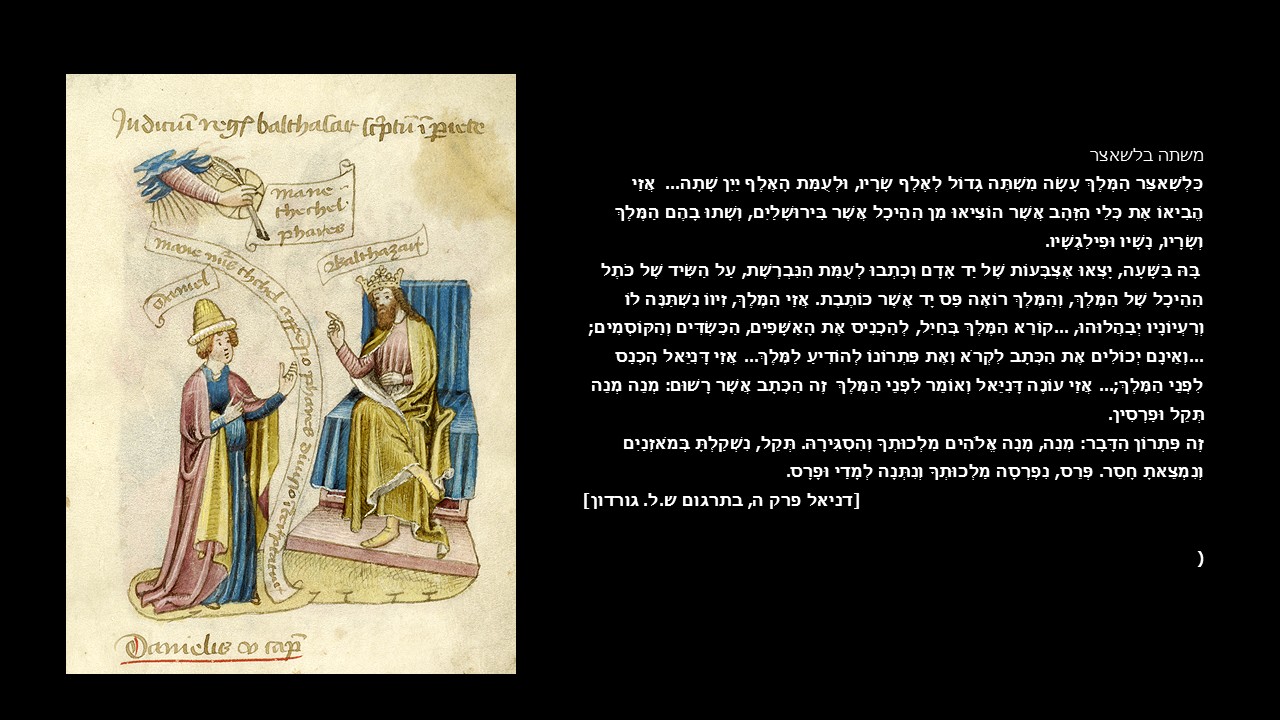 Judiciū reg balthasar sc̄ptū ī piete
mane
thechel
phares
Balthazar
mane
thechel
phares
Daniel
Danielis v cap̄
משתה בלשאצר
כֵּלְשַׁאצַּר הַמֶּלֶךְ עָשָׂה מִשְׁתֶּה גָדוֹל לְאֶלֶף שָׂרָיו, וּלְעֻמַּת הָאֶלֶף יַיִן שָׁתָה... אֲזַי
הֱבִיאוֹ אֶת כְּלֵי הַזָּהָב אֲשֶׁר הוֹצִיאוּ מִן הַהֵיכָל אֲשֶׁר בִּירוּשָׁלַיִם, וְשָׁתוּ בָהֶם הַמֶּלֶךְ
וְשָׂרָיו, נָשָׁיו וּפִילַגְשָׁיו.
בָּהּ בַּשָּׁעָה, יָצְאוּ אֶצְבְּעוֹת שֶׁל יַד אָדָם וְכָתְבוּ לְעֻמַּת הַנִּבְרֶשֶׁת, עַל הַשִּׂיד שֶׁל כֹּתֶל
הַהֵיכָל שֶׁל הַמֶּלֶךְ, וְהַמֶּלֶךְ רוֹאֶה פַּס יָד אֲשֶׁר כּוֹתֶבֶת. אֲזַי הַמֶּלֶךְ, זִיווֹ נִשְׁתַּנָּה לוֹ
וְרַעְיוֹנָיו יְבַהֲלוּהוּ, ...קוֹרֵא הַמֶּלֶךְ בְּחַיִל, לְהַכְנִיס אֶת הָאַשָּׁפִים, הַכַּשְׂדִּים וְהַקּוֹסְמִים;
...וְאֵינָם יְכוֹלִים אֶת הַכְּתָב לִקְרֹא וְאֶת פִּתְרוֹנוֹ לְהוֹדִיעַ לַמֶּלֶךְ... אֲזַי דָּנִיֵּאל הֻכְנַס
לִפְנֵי הַמֶּלֶךְ;... אֲזַי עוֹנֶה דָּנִיֵּאל וְאוֹמֵר לִפְנֵי הַמֶּלֶךְ זֶה הַכְּתָב אֲשֶׁר רָשׁוּם: מְנֵה מְנֵה
תְּקֵל וּפַרְסִין.
זֶה פִּתְרוֹן הַדָּבָר: מְנֵה, מָנָה אֱלֹהִים מַלְכוּתְךָ וְהִסְגִּירָהּ. תְּקֵל, נִשְׁקַלְתָּ בְּמֹאזְנַיִם
וְנִמְצֵאתָ חָסֵר. פְּרֵס, נִפְרְסָה מַלְכוּתְךָ וְנִתְּנָה לְמָדַי וּפָרָס.
[דניאל פרק ה, בתרגום ש.ל. גורדון]
(